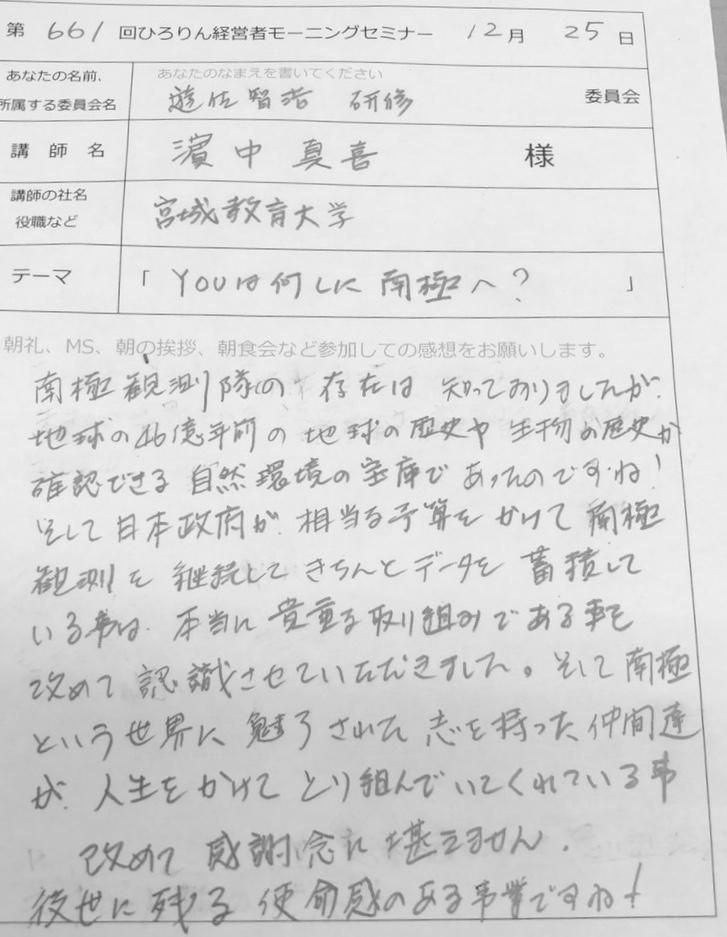 第 661 回ひろりん経営者モーニングセミナー 12月 25日
あなたの名前、
所属する委員会名
あなたのなまえを書いてください
遊佐智浩 研修 委員会
講師名 濱中真喜 様
講師の社名
役職など
宮城教育大学
テーマ 「YOUは何しに南極へ? 」
朝礼、MS、朝の挨拶、朝食会など参加しての感想をお願いします。
南極観測隊の存在は知っておりましたが、
地球の46億年前の地球の歴史や生物の歴史が
確認できる自然環境の宝庫であったのですね!
そして日本政府が相当な予算をかけて南極
観測を継続してきちんとデータを蓄積して
いる事は、本当に貴重な取り組みである事を
改めて認識させていただきました。そして南極
という世界に魅了された志を持った仲間達
が、人生をかけてとり組んでいてくれている事
改めて感謝念に堪えません。
後世に残る使命感のある事業ですね!